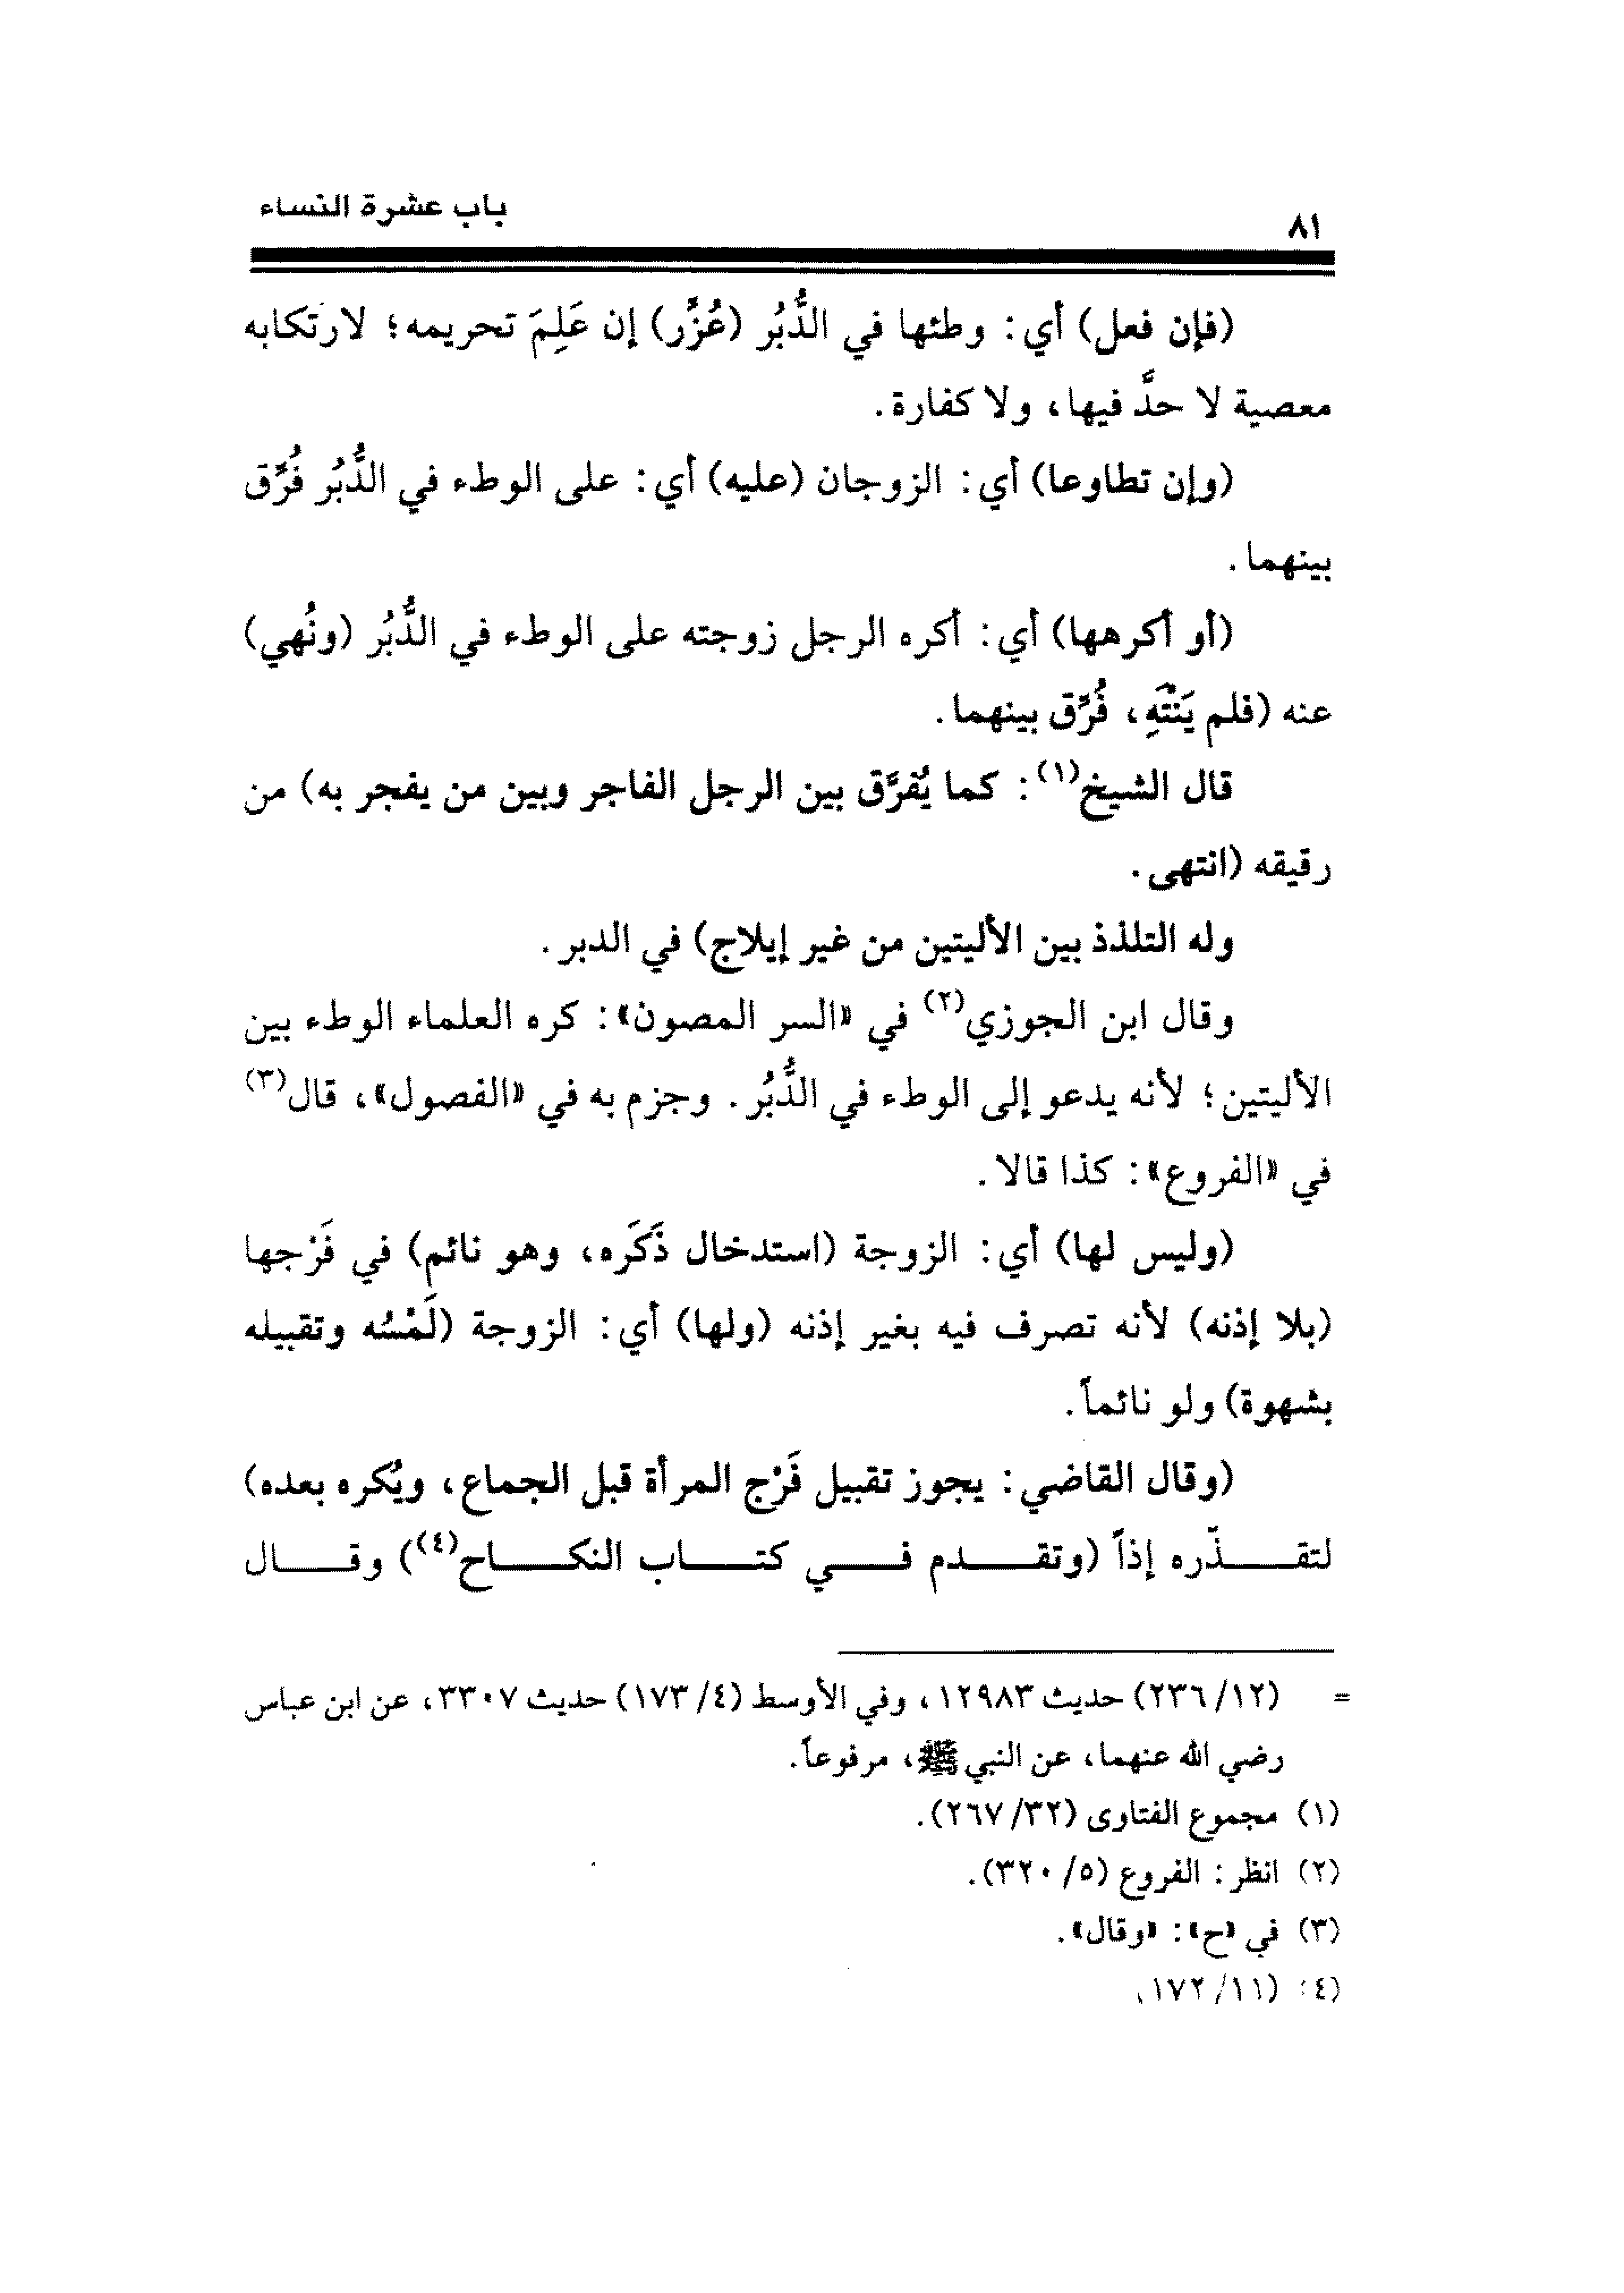 باب عشرة النساء
٨١
(فإن فعل) أي: وطئها في الدُّبُر (عُزِّر) إن عَلِمَ تحريمه؛ لارتكابه
معصية لا حدَّ فيها، ولا كفارة.
(وإن تطاوعا) أي: الزوجان (عليه) أي: على الوطء في الدُّبُر فُرِّق
بينهما.
(أو أكرهها) أي: أكره الرجل زوجته على الوطء في الدُّبُر (ونُهي)
عنه (فلم يَنْتَهِ، فُرِّق بينهما.
قال الشيخ(١): كما يُفرَّق بين الرجل الفاجر وبين من يفجر به) من
رقيقه (انتهى.
وله التلذذ بين الأليتين من غير إيلاج) في الدبر.
وقال ابن الجوزي(٢) في «السر المصون»: كره العلماء الوطء بين
الأليتين؛ لأنه يدعو إلى الوطء في الدُّبُر. وجزم به في «الفصول»، قال(٣)
في «الفروع»: كذا قالا.
(وليس لها) أي: الزوجة (استدخال ذَكَره، وهو نائم) في فَرْجها
(بلا إذنه) لأنه تصرف فيه بغير إذنه (ولها) أي: الزوجة (لَمْسُه وتقبيله
بشهوة) ولو نائماً.
(وقال القاضي: يجوز تقبيل فَرْج المرأة قبل الجماع، ويُكره بعده)
لتقذّره إذاً (وتقدم في كتاب النكاح(٤)) وقال
= (١٢/ ٢٣٦) حديث ١٢٩٨٣، وفي الأوسط (٤/ ١٧٣) حديث ٣٣٠٧، عن ابن عباس
رضي الله عنهما، عن النبي ﷺ، مرفوعاً.
(١) مجموع الفتاوى (٣٢/ ٢٦٧).
(٢) انظر: الفروع (٥/ ٣٢٠).
(٣) في «ح»: «وقال».
(٤) (١١/ ١٧٢)